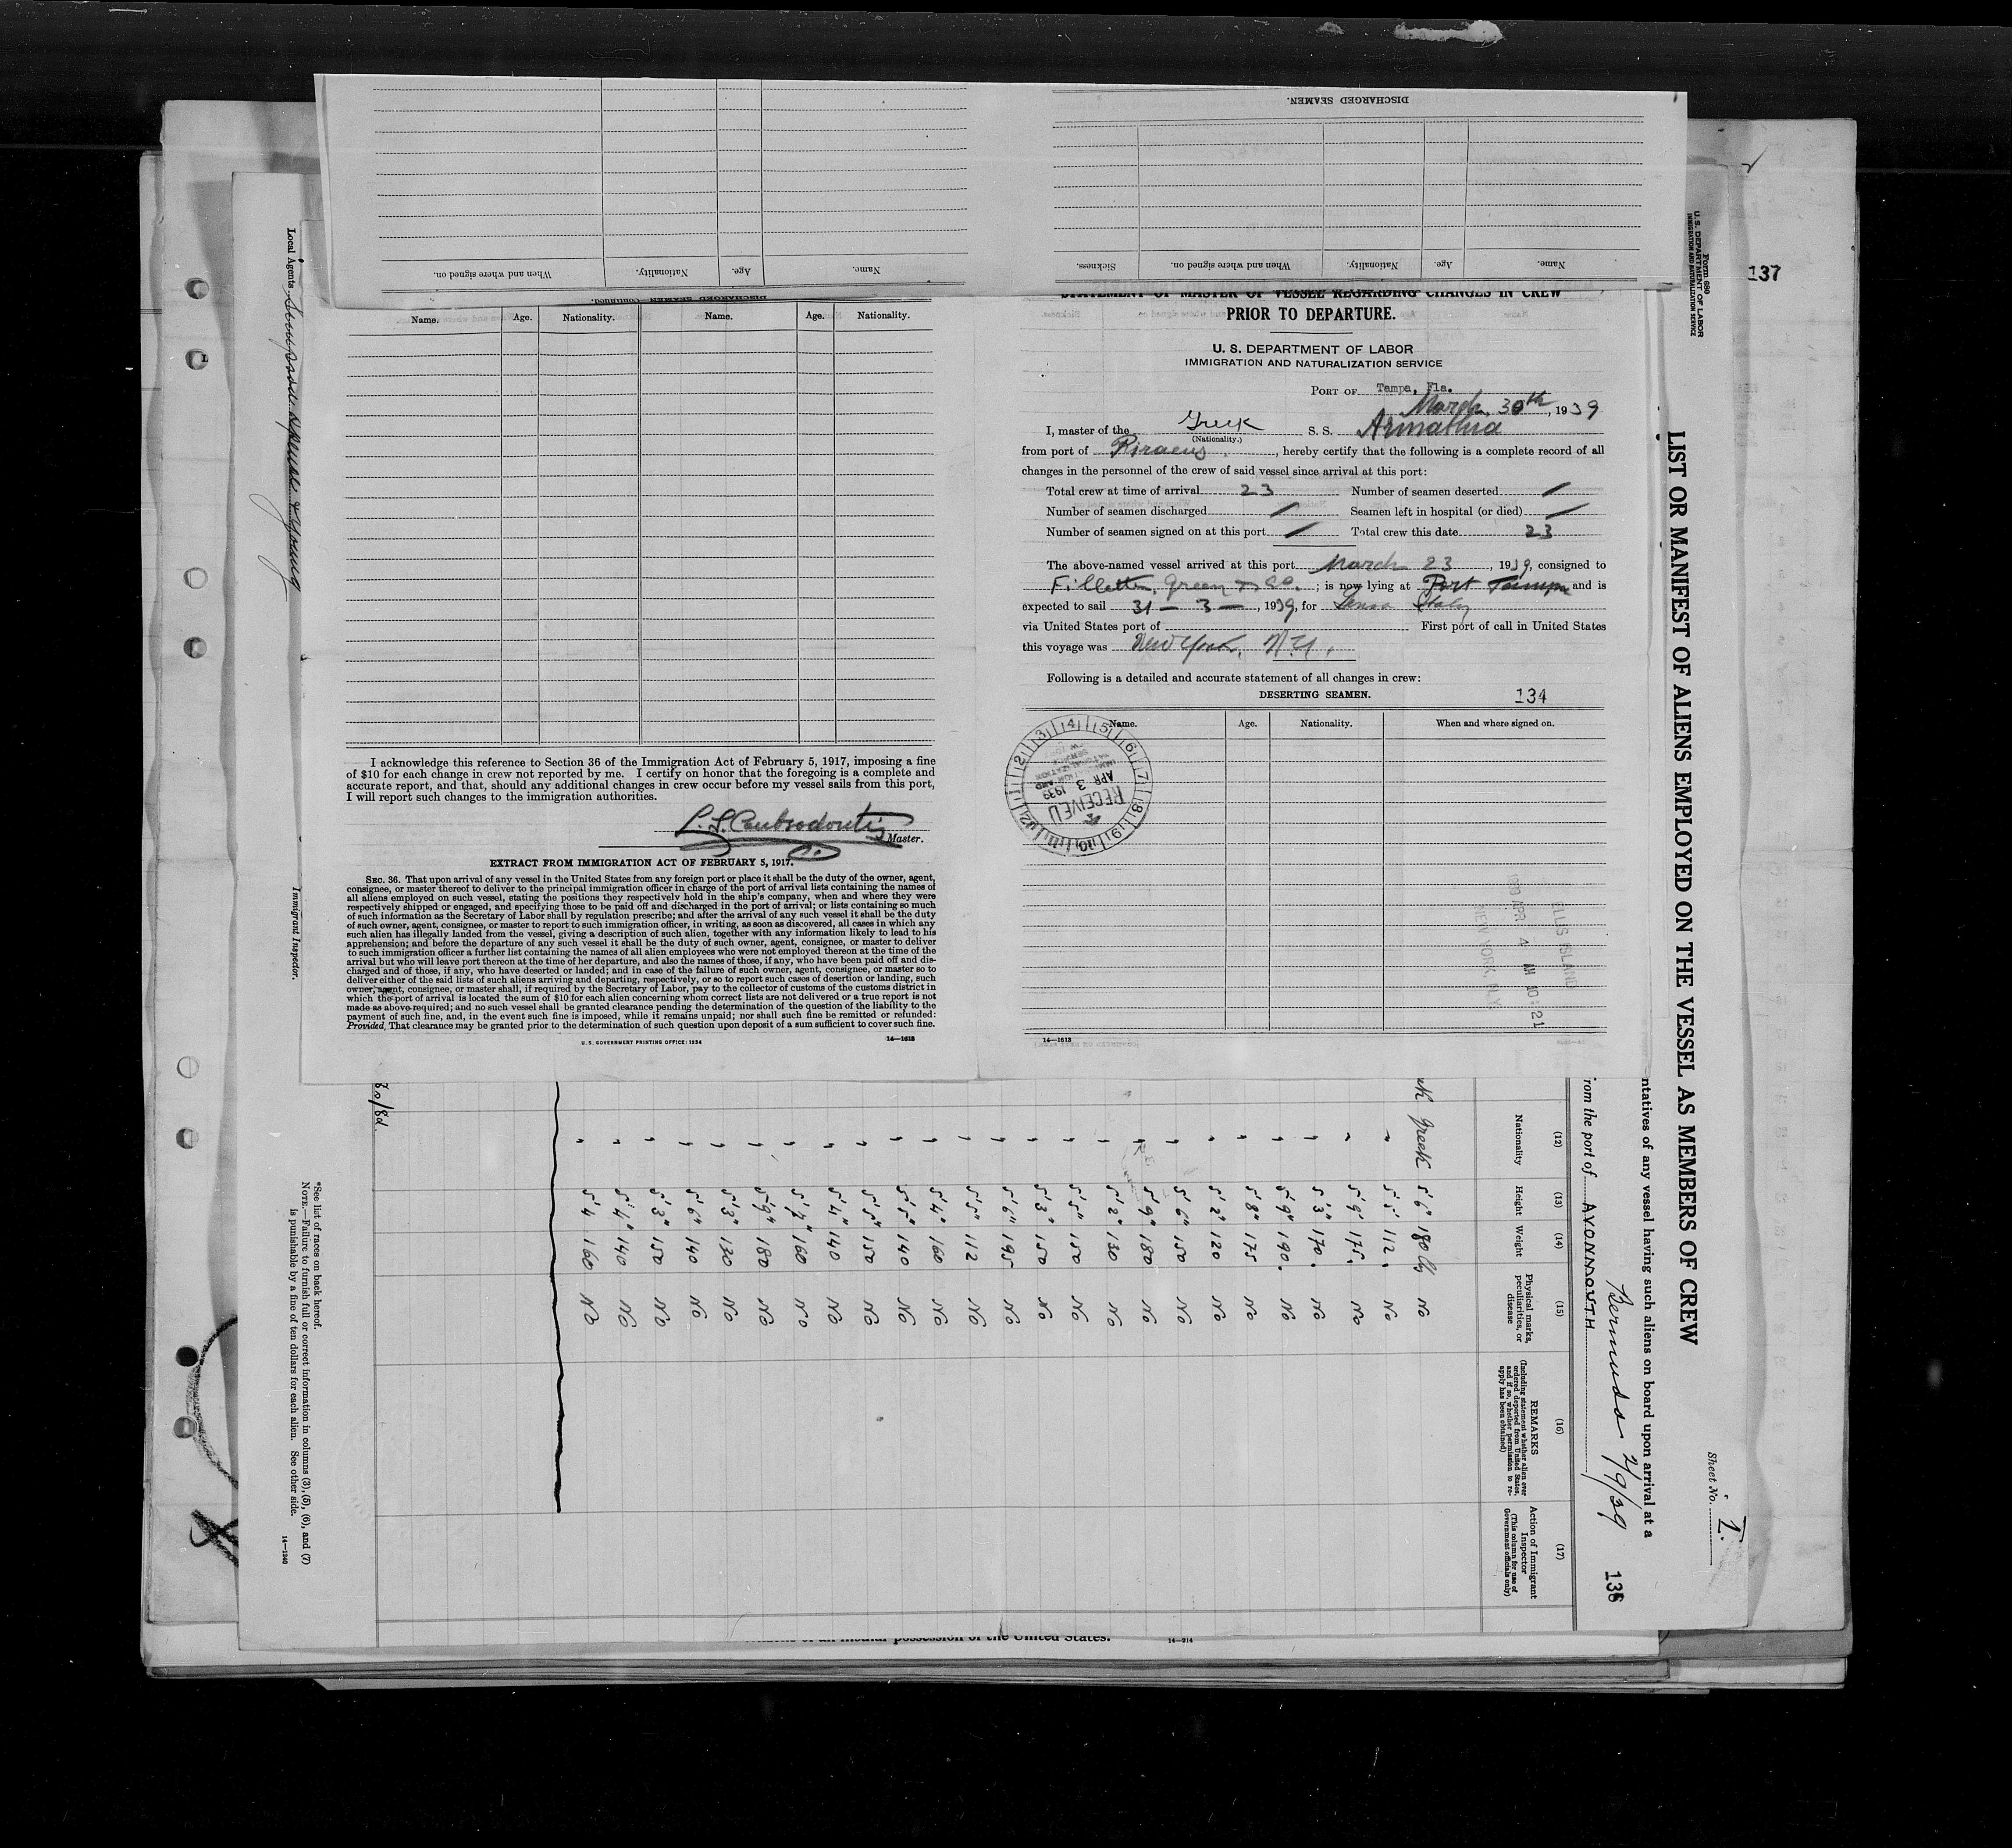 DISCHARGED SEAMEN.
Name. Age. Nationality. When and where signed on. Sickness.
Name. Age. Nationality. When and where signed on.
DISCHARGED SEAMEN Continued.
Name. Age. Nationality. Name. Age. Nationality.
I acknowledge this reference to Section 36 of the Immigration Act of February 5, 1917, imposing a fine
of $10 for each change in crew not reported by me. I certify on honor that the foregoing is a complete and
accurate report, and that, should any additional changes in crew occur before my vessel sails from this port,
I will report such changes to the immigration authorities.
Master.
EXTRACT FROM IMMIGRATION ACT OF FEBRUARY 5, 1917.
SEC. 36. That upon arrival of any vessel in the United States from any foreign port or place it shall be the duty of the owner, agent,
consignee, or master thereof to deliver to the principal immigration officer in charge of the port of arrival lists containing the names of
all aliens employed on such vessel, stating the positions they respectively hold in the ship's company, when and where they were
respectively shipped or engaged, and specifying those to be paid off and discharged in the port of arrival; or lists containing so much
of such information as the Secretary of Labor shall by regulation prescribe; and after the arrival of any such vessel it shall be the duty
of such owner, agent, consignee, or master to report to such immigration officer, in writing, as soon as discovered, all cases in which any
such alien has illegally landed from the vessel, giving a description of such alien, together with any information likely to lead to his
apprehension; and before the departure of any such vessel it shall be the duty of such owner, agent, consignee, or master to deliver
to such immigration officer a further list containing the names of all alien employees who were not employed thereon at the time of the
arrival but who will leave port thereon at the time of her departure, and also the names of those, if any, who have been paid off and dis-
charged and of those, if any, who have deserted or landed; and in case of the failure of such owner, agent, consignee, or master so to
deliver either of the said lists of such aliens arriving and departing, respectively, or so to report such cases of desertion or landing, such
owner, agent, consignee, or master shall, if required by the Secretary of Labor, pay to the collector of customs of the customs district in
which the port of arrival is located the sum of $10 for each alien concerning whom correct lists are not delivered or a true report is not
made as above required; and no such vessel shall be granted clearance pending the determination of the question of the liability to the
payment of such fine, and, in the event such fine is imposed, while it remains unpaid; nor shall such fine be remitted or refunded:
Provided, That clearance may be granted prior to the determination of such question upon deposit of a sum sufficient to cover such fine.
U. S. GOVERNMENT PRINTING OFFICE: 1934 14—1613
STATEMENT OF MASTER OF VESSEL REGARDING CHANGES IN CREW
PRIOR TO DEPARTURE.
U. S. DEPARTMENT OF LABOR
IMMIGRATION AND NATURALIZATION SERVICE
PORT OF Tampa, Fla.
March, 30th, 1939
I, master of the Greek S. S. Armathia
(Nationality.)
from port of Piraeus, hereby certify that the following is a complete record of all
changes in the personnel of the crew of said vessel since arrival at this port:
Total crew at time of arrival 23 Number of seamen deserted /
Number of seamen discharged / Seamen left in hospital (or died) /
Number of seamen signed on at this port / Total crew this date 23
The above-named vessel arrived at this port March 23, 1939, consigned to
Fillette, Green & Co.; is now lying at Port Tampa and is
expected to sail 31 — 3 —, 1939, for Italy
via United States port of First port of call in United States
this voyage was New York, N.Y.
Following is a detailed and accurate statement of all changes in crew:
DESERTING SEAMEN. 134
Name. Age. Nationality. When and where signed on.
RECEIVED
APR 3 1939
ELLIS ISLAND
1939 APR 4 AM 10:21
NEW YORK, N.Y.
14—1613
Form 680
U. S. DEPARTMENT OF LABOR
IMMIGRATION AND NATURALIZATION SERVICE
137
LIST OR MANIFEST OF ALIENS EMPLOYED ON THE VESSEL AS MEMBERS OF CREW
Sheet No. 1.
ntatives of any vessel having such aliens on board upon arrival at a
Bermuda 2/9/39
rom the port of AVONMOUTH
135
(12) (13) (14) (15) (16) (17)
Nationality Height Weight Physical marks, peculiarities, or disease REMARKS (Including statement whether alien ever ordered deported from United States, and if so, whether permission to re-apply has been obtained) Action of Immigrant Inspector (This column for use of Government officials only)
Greek 5'6" 180 lb No
" 5'5' 112. No
" 5'9' 175. No
" 5'3" 170. No
" 5'9" 190. No
" 5'8" 175. No
" 5'2" 120 No
" 5'6" 150 No
" 5'9" 180 No
" 5'2" 130 No
" 5'5" 150 No
" 5'3" 150 No
" 5'6" 195 No
" 5'5" 112 No
" 5'4" 160 No
" 5'5" 140 No
" 5'5" 150 No
" 5'4" 140 No
" 5'7" 160 No
" 5'9" 180 No
" 5'3" 130 No
" 5'6" 140 No
" 5'3" 150 No
" 5'4" 140 No
" 5'4 160 No
Local Agents Simpson Spence & Young
Immigrant Inspector.
*See list of races on back hereof.
NOTE.—Failure to furnish full or correct information in columns (3), (5), (6), and (7)
is punishable by a fine of ten dollars for each alien. See other side.
14—1240
possession of the United States. 14—914